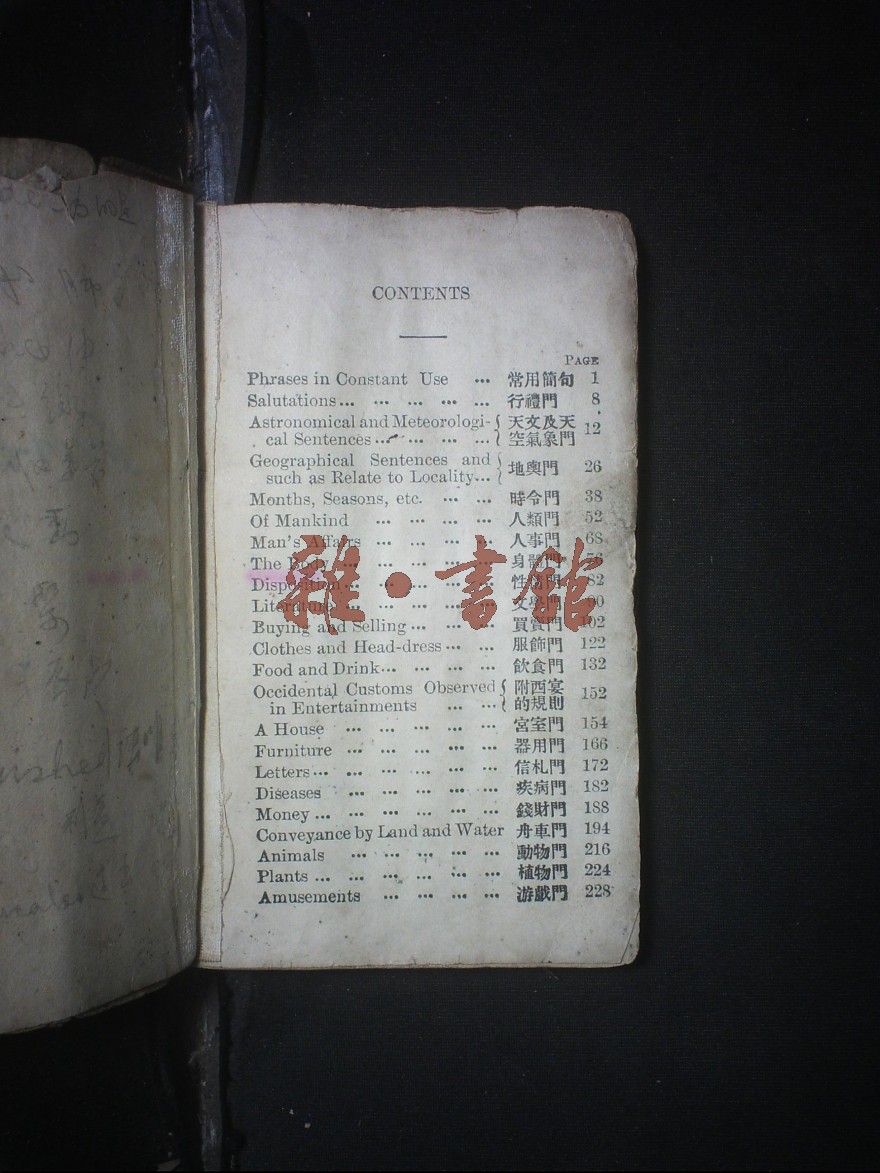 CONTENTS
PAGE
Phrases in Constant Use ... 常用簡句 1
Salutations... ... ... ... ... 行禮門 8
Astronomical and Meteorologi- { 天文及天
cal Sentences ... ... ... ... { 空氣象門 12
Geographical Sentences and {
such as Relate to Locality... { 地輿門 26
Months, Seasons, etc. ... ... 時令門 38
Of Mankind ... ... ... ... 人類門 52
Man's Affairs ... ... ... ... 人事門 68
The Body ... ... ... ... ... 身體門
Disposition ... ... ... ... ... 性情門 82
Literature ... ... ... ... ... 文學門 90
Buying and Selling ... ... ... 買賣門 102
Clothes and Head-dress ... ... 服飾門 122
Food and Drink... ... ... ... 飲食門 132
Occidental Customs Observed { 附西宴
in Entertainments ... ... { 的規則 152
A House ... ... ... ... ... 宮室門 154
Furniture ... ... ... ... ... 器用門 166
Letters ... ... ... ... ... 信札門 172
Diseases ... ... ... ... ... 疾病門 182
Money ... ... ... ... ... ... 錢財門 188
Conveyance by Land and Water 舟車門 194
Animals ... ... ... ... ... 動物門 216
Plants ... ... ... ... ... ... 植物門 224
Amusements ... ... ... ... 游戲門 228
雜·書館